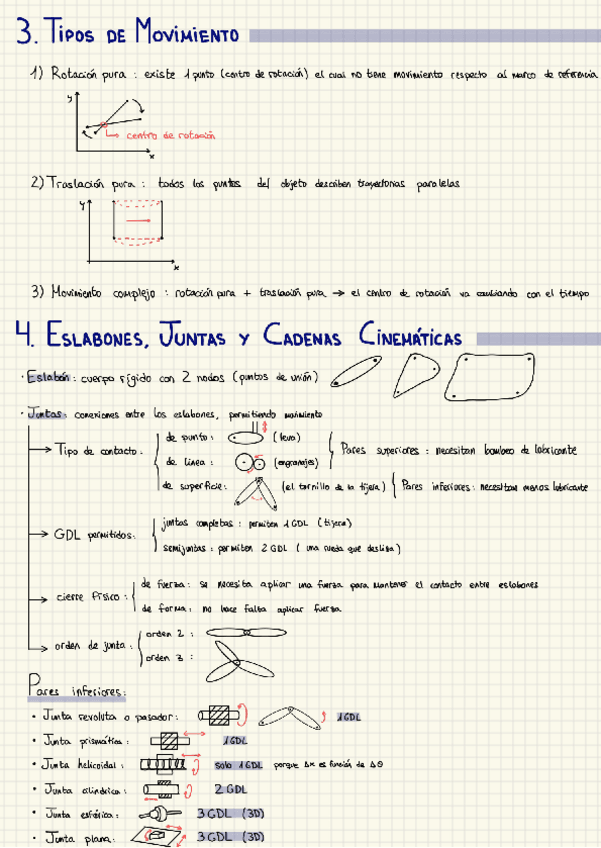 3. TIPOS DE MOVIMIENTO
1) Rotación pura : existe 1 punto (centro de rotación) el cual no tiene movimiento respecto al marco de referencia
y
centro de rotación
x
2) Traslación pura : todos los puntos del objeto describen trayectorias paralelas
y
x
3) Movimiento complejo : rotación pura + traslación pura → el centro de rotación va cambiando con el tiempo
4. ESLABONES, JUNTAS Y CADENAS CINEMÁTICAS
· Eslabón : cuerpo rígido con 2 nodos (puntos de unión)
· Juntas : conexiones entre los eslabones, permitiendo movimiento
→ Tipo de contacto :
de punto : (leva)
de línea : (engranajes)
Pares superiores : necesitan bombeo de lubricante
de superficie : (el tornillo de la tijera)
Pares inferiores : necesitan menos lubricante
→ GDL permitidos :
juntas completas : permiten 1 GDL (tijera)
semijuntas : permiten 2 GDL ( una rueda que desliza)
→ cierre físico :
de fuerza : se necesita aplicar una fuerza para mantener el contacto entre eslabones
de forma : no hace falta aplicar fuerza
→ orden de junta :
orden 2 :
orden 3 :
Pares inferiores :
· Junta revoluta o pasador : 1 GDL
· Junta prismática : 1 GDL
· Junta helicoidal : solo 1 GDL porque Δx es función de Δθ
· Junta cilíndrica : 2 GDL
· Junta esférica : 3 GDL (3D)
· Junta plana : 3 GDL (3D)